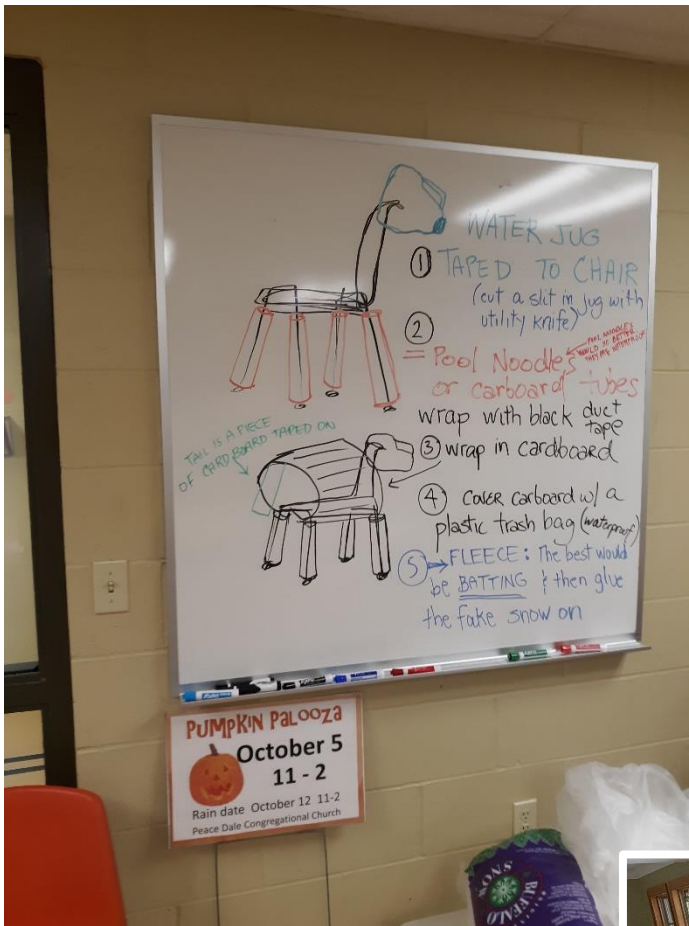 WATER JUG
① TAPED TO CHAIR
(cut a slit in jug with
utility knife)
②
= Pool Noodles
POOL NOODLES
WOULD BE BETTER
THEY ARE WATERPROOF
or carboard tubes
wrap with black duct
tape
③ wrap in cardboard
TAIL IS A PIECE
OF CARDBOARD TAPED ON
④ COVER carboard w/ a
plastic trash bag (waterproof)
⑤ → FLEECE: The best would
be BATTING & then glue
the fake snow on
PUMPKIN PALOOZA
October 5
11 - 2
Rain date October 12 11-2
Peace Dale Congregational Church
BUFFALO
SNOW